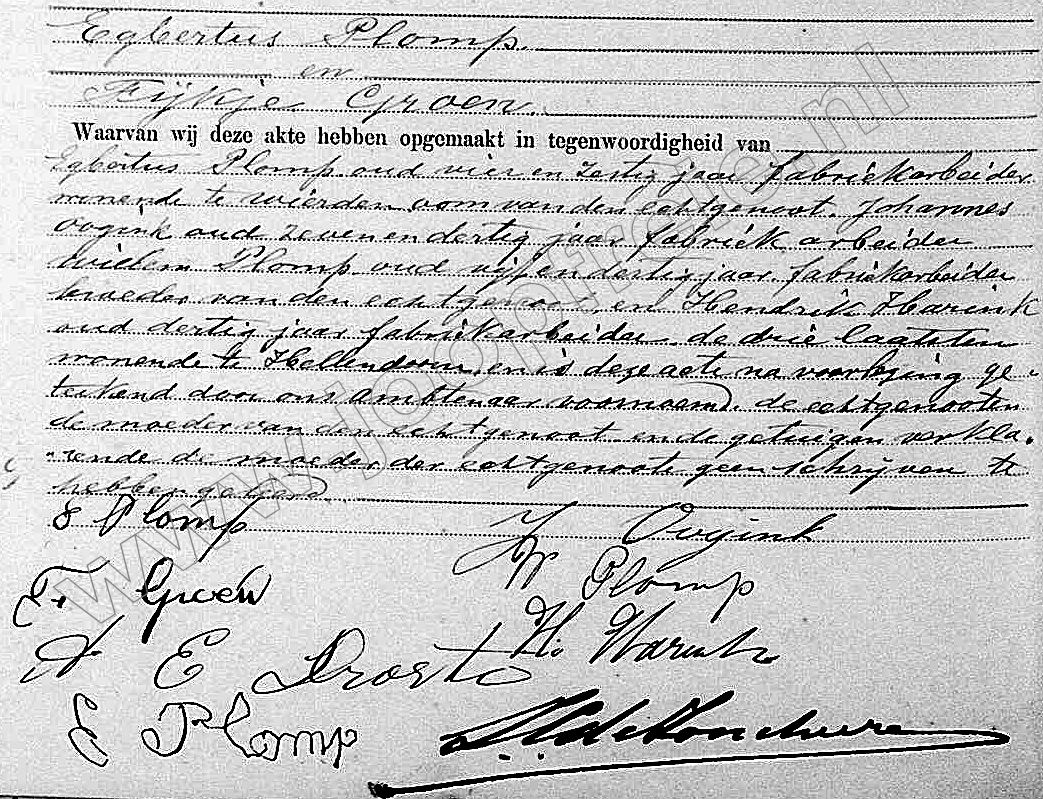 Egbertus Plomp.
en
Fijkje Groen.
Waarvan wij deze akte hebben opgemaakt in tegenwoordigheid van
Egbertus Plomp oud vier en zestig jaar fabriekarbeider
wonende te Wierden oom van den echtgenoot. Johannes
Oogink oud zevenendertig jaar fabriek arbeider
Willem Plomp oud vijf en dertig jaar fabriekarbeider
broeder van den echtgenoot en Hendrik Harink
oud dertig jaar fabriekarbeider de drie laatsten
wonende te Hellendoorn, en is deze acte na voorlezing ge-
teekend door ons ambtenaar voornoemd. de echtgenooten
de moeder van den echtgenoot en de getuigen verkla-
rende de moeder der echtgenoote geen schrijven te
hebben geleerd.
E Plomp
J Oogink
W Plomp
F. Groen
H. Harink
E Drost
E Plomp
www.jooptreng.nl